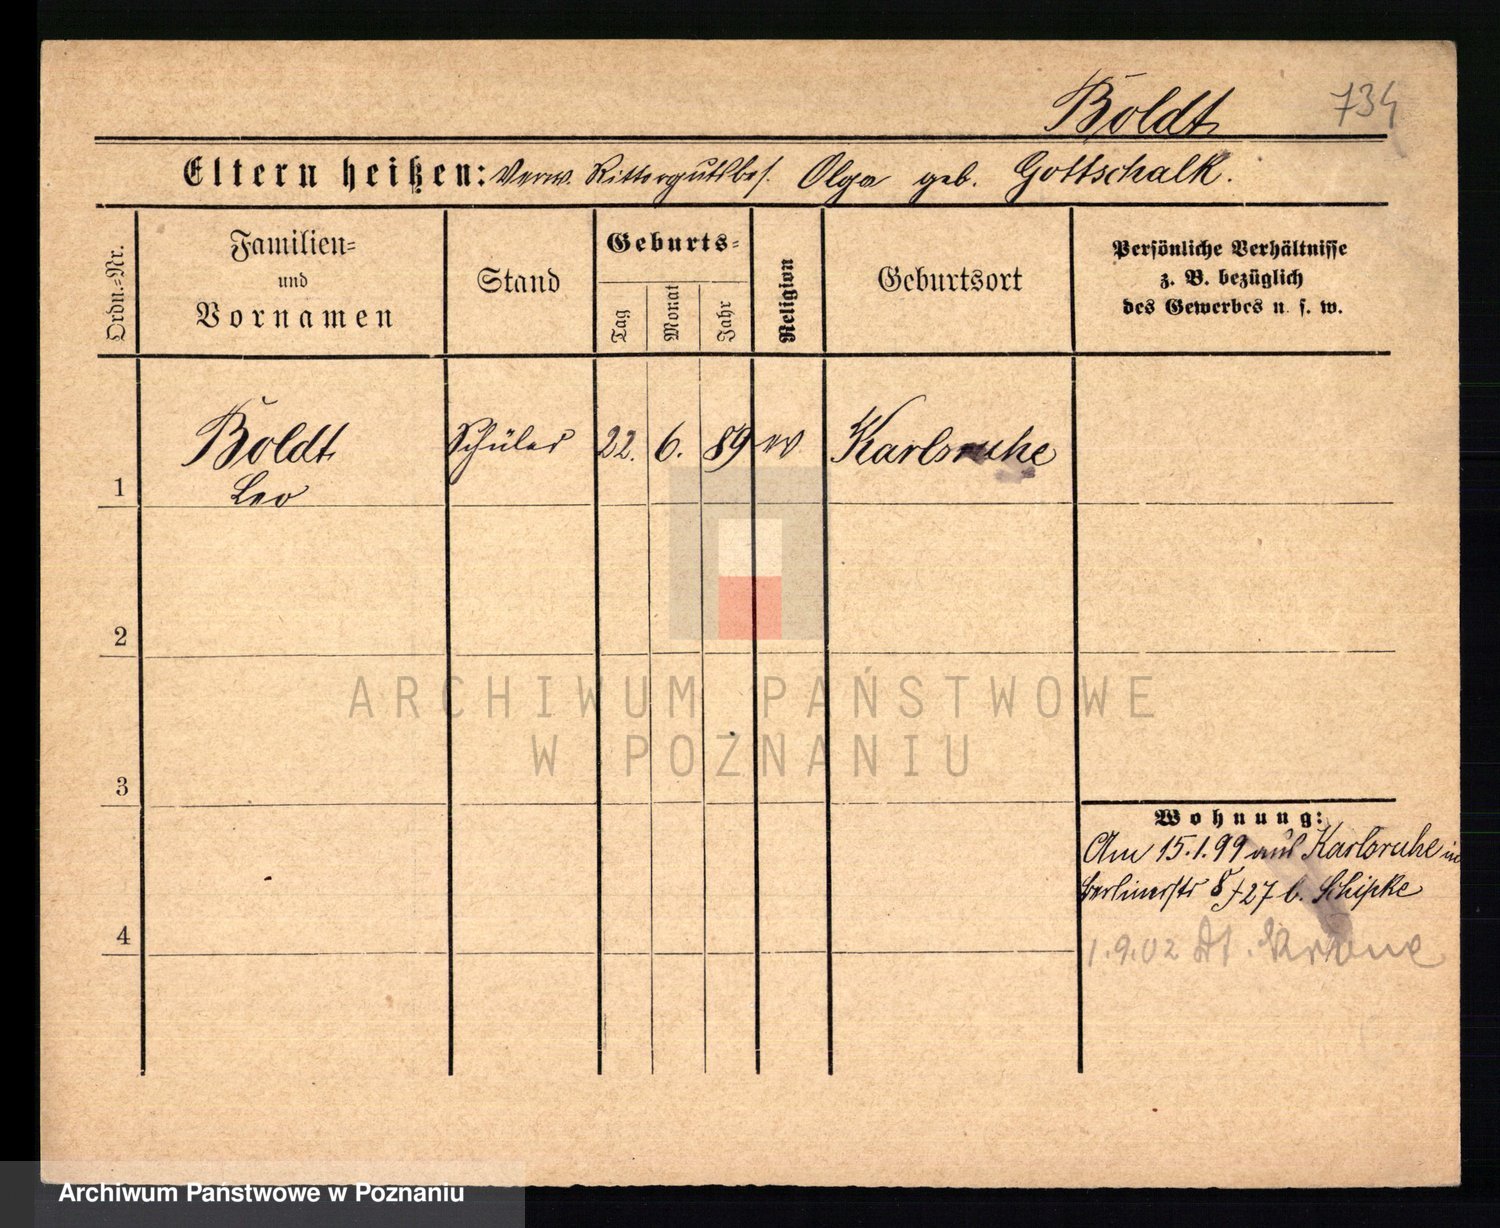 Boldt
734
Eltern heißen: Verw. Rittergutsbes. Olga geb. Gottschalk.
Ordn.-Nr.
Familien-
und
Vornamen
Stand
Geburts-
Tag
Monat
Jahr
Religion
Geburtsort
Persönliche Verhältnisse
z. B. bezüglich
des Gewerbes u. s. w.
1
Boldt
Leo
Schüler
22.
6.
89
ev
Karlsruhe
2
3
4
ARCHIWUM PAŃSTWOWE
W POZNANIU
Wohnung:
Am 15.1.99 aus Karlsruhe in
Berlinerstr 8 f 27 b. Schipke
1.9.02 Dt. Krone
Archiwum Państwowe w Poznaniu